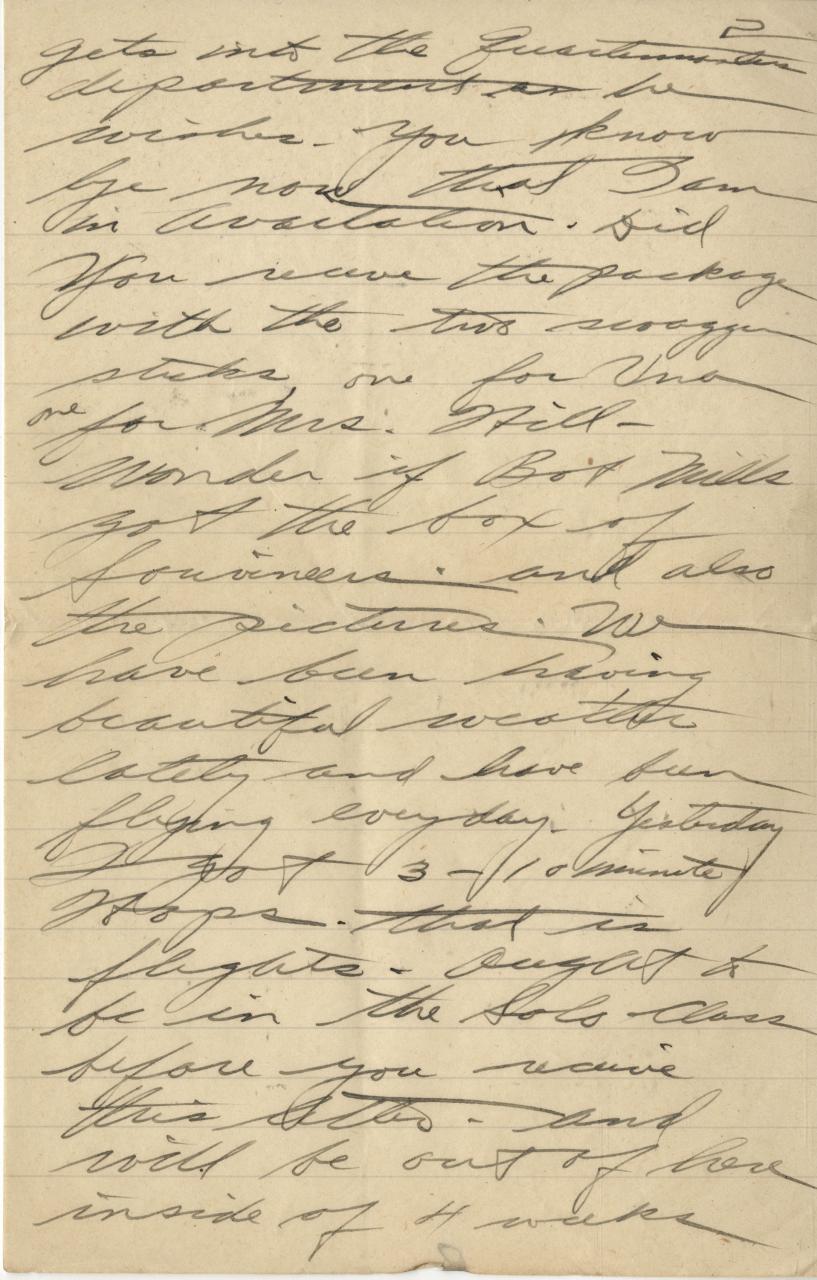 2
gets into the Quartermasters
department as he
wishes. You know
bye now that I am
in Avaitation. Did
You receive the package
with the two swagger
sticks, one for Una
one for Mrs. Hill -
Wonder if Bob Mills
got the box of
Souvineers. and also
the pictures. We
have been having
beautiful weather
lately and have been
flying everyday. Yesterday
I got 3 - 10 minute
Hops. that is
flights. Ought to
be in the Solo Class
before you receive
this letter. and
will be out of here
inside of 4 weeks